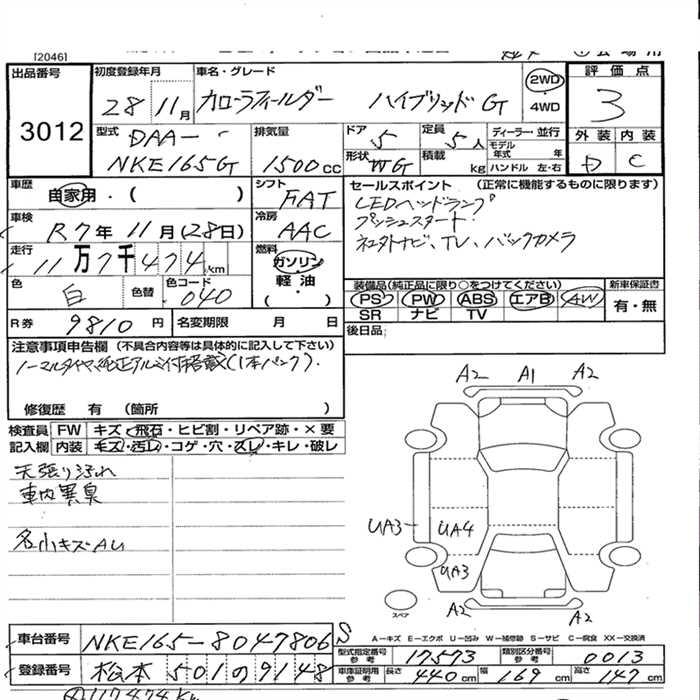 [2046]
出品番号
3012
初度登録年月
28年11月
車名・グレード
カローラフィールダー ハイブリッド G
2WD
4WD
評価点
3
外装 内装
D C
型式
DAA-
NKE165G
排気量
1500cc
ドア 5
形状 WG
定員 5人
積載 kg
ディーラー・並行
モデル年式 年
ハンドル 左・右
車歴
自家用・( )
シフト
FAT
車検
R7年11月(28日)
冷房
AAC
走行
11万7千474km
燃料
ガソリン
軽油
( )
色
白
色替
色コード
040
R券 9810円
名変期限 月 日
セールスポイント (正常に機能するものに限ります)
LEDヘッドランプ
プッシュスタート
ネエタトナビ、TV、バックカメラ
装備品(純正品に限り○をつけてください)
PS PW ABS エアB AW
SR ナビ TV
新車保証書
有・無
後日品
注意事項申告欄 (不具合内容等は具体的に記入して下さい)
ノーマルタイヤ、純正アルミ付搭載(1本パンク).
修復歴 有 (箇所 )
検査員記入欄
FW キズ・飛石・ヒビ割・リペア跡・×要
内装 キズ・汚レ・コゲ・穴・スレ・キレ・破レ
天張り汚れ
車内異臭
各小キズAU
A2 A1 A2
UA3 UA4
UA3
A2 A2
スペア
A-キズ E-エクボ U-凹み W-補修跡 S-サビ C-腐食 XX-交換済
車台番号 NKE165-8047806
S
登録番号 松本 501の9148
型式指定番号 参考 17573
類別区分番号 参考 0013
車庫証明用 参考 長さ 440cm 幅 169cm 高さ 147cm